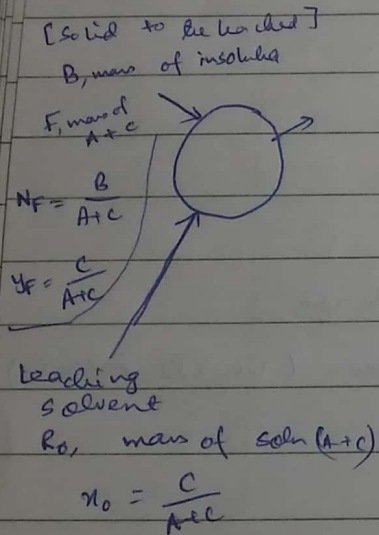 [Solid to be leached]
B, mass of insoluble
F, mass of
A+C
N_F = B / A+C
y_F = C / A+C
Leaching
solvent
R_0, mass of soln (A+C)
x_0 = C / A+C